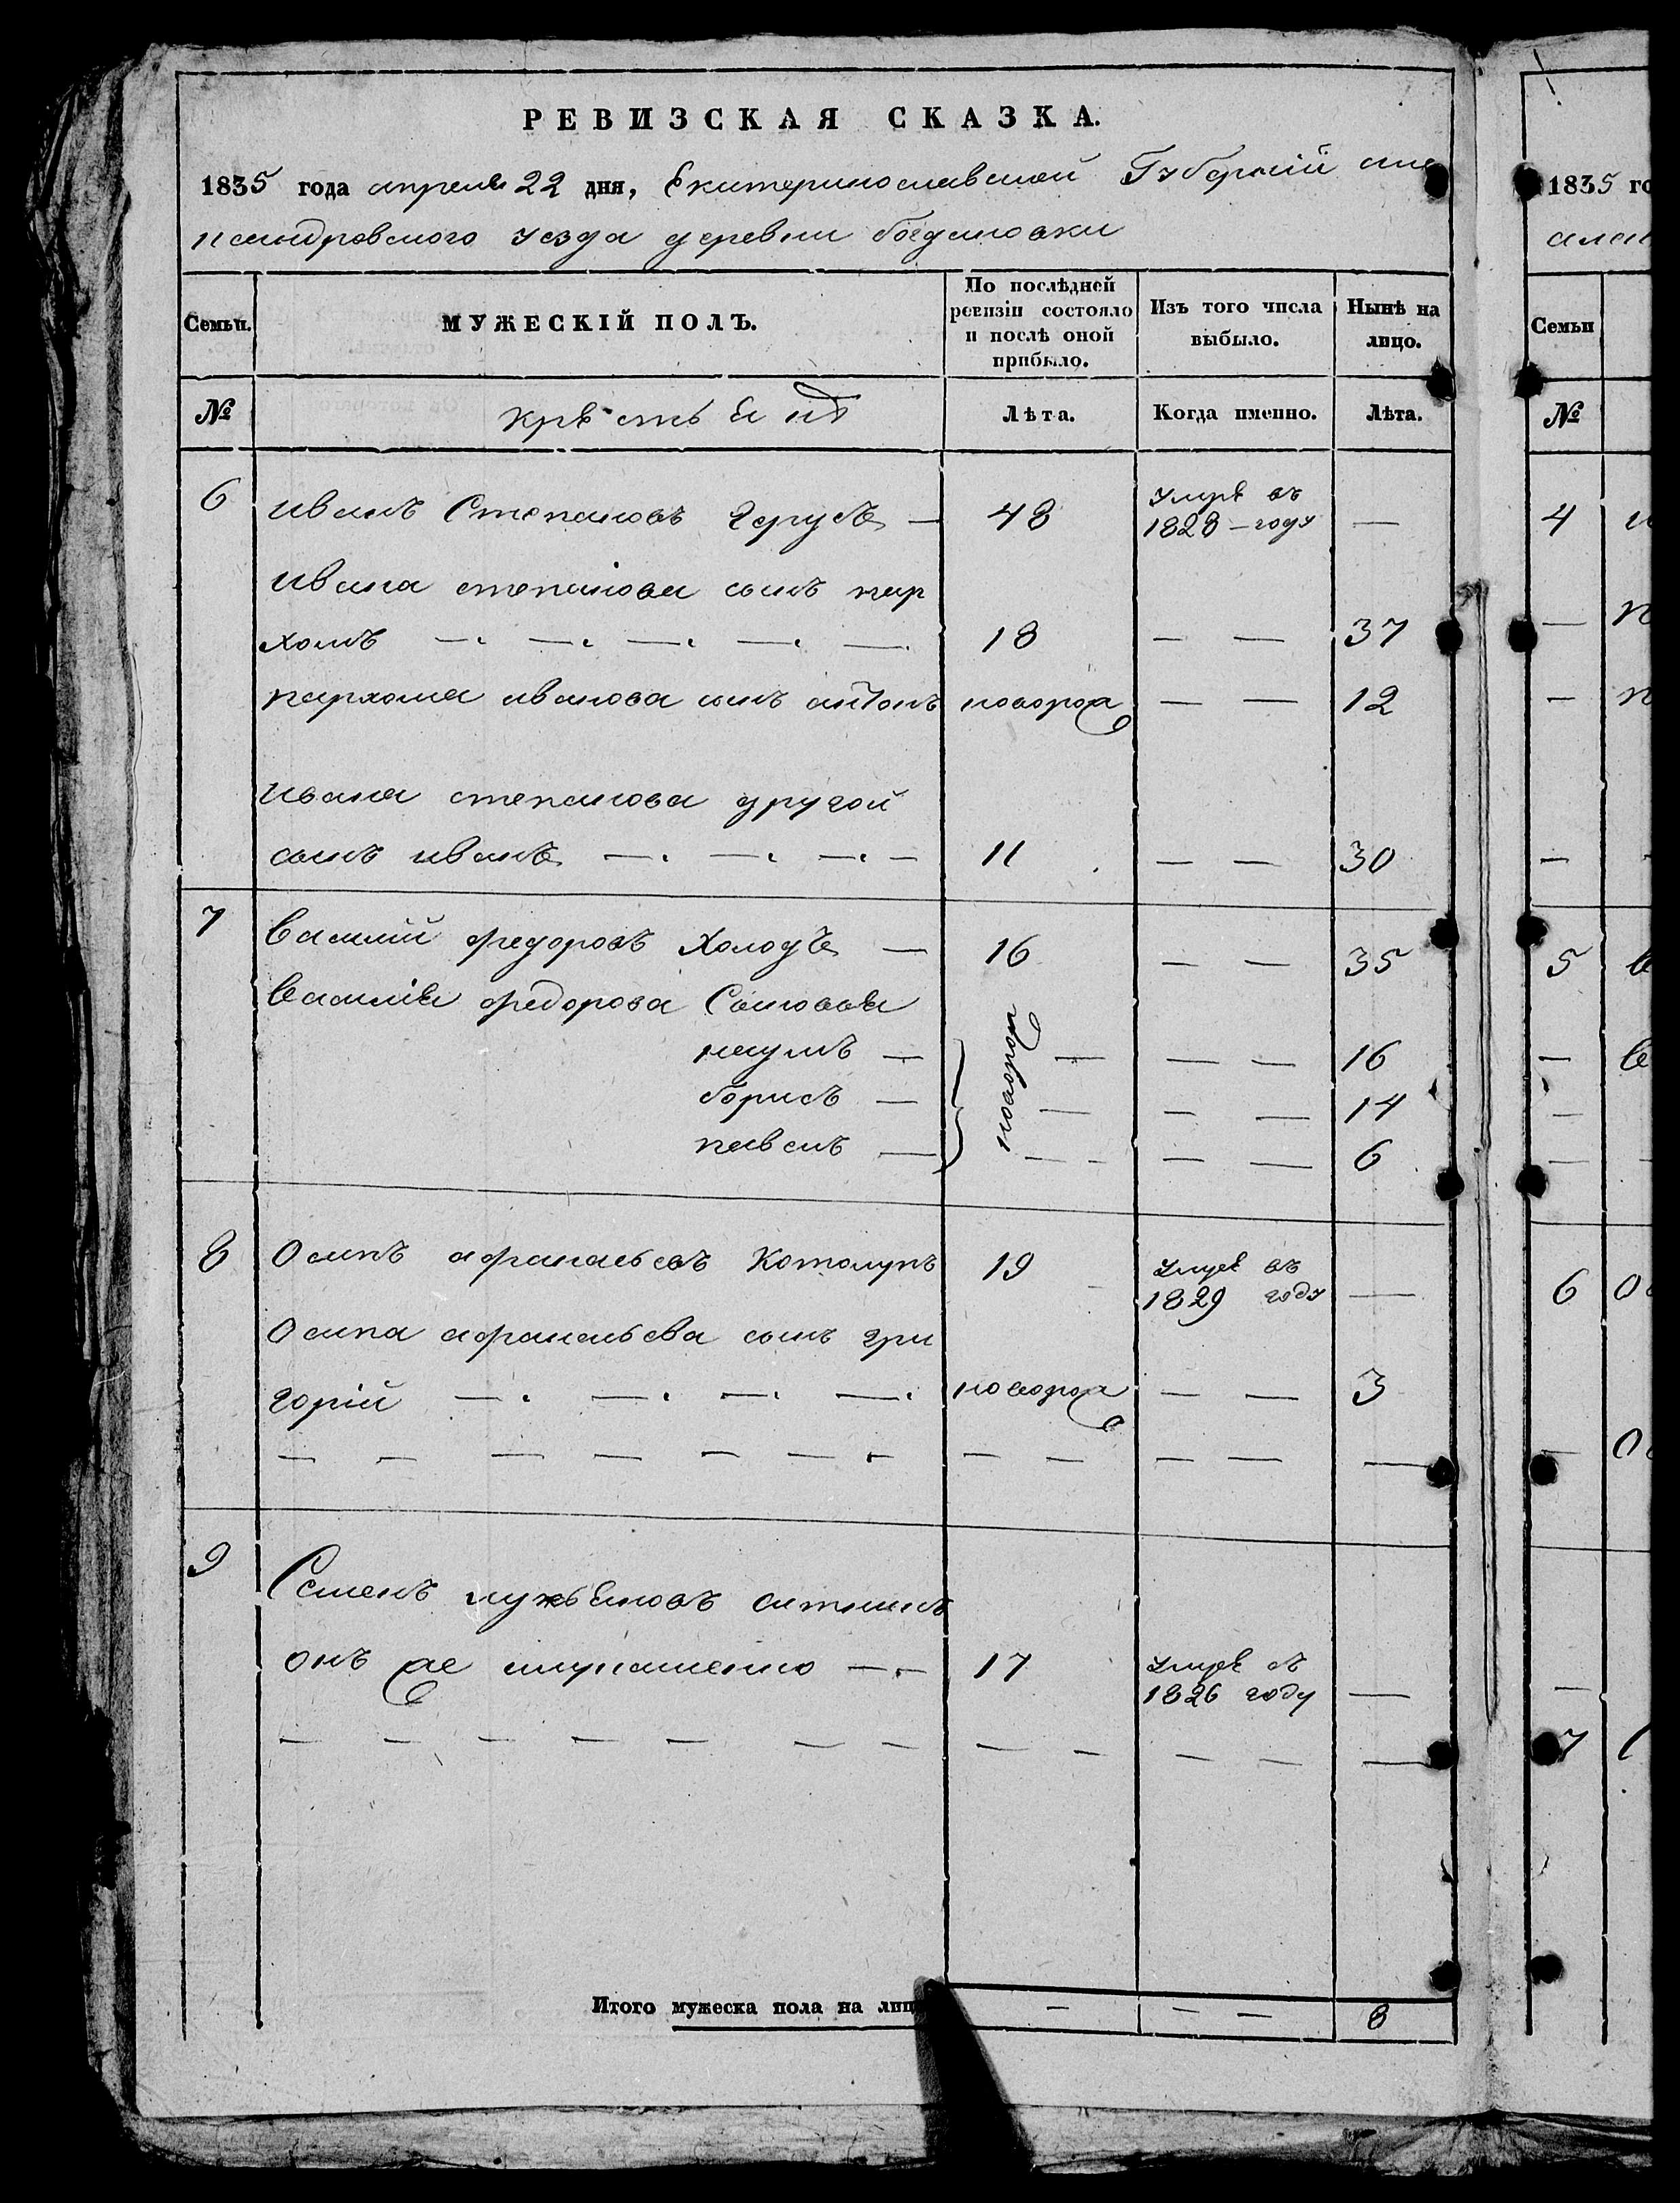 РЕВИЗСКАЯ СКАЗКА.
1835 года апреля 22 дня, Екатеринославской Губернiи але
ксандровского уезда деревни богдановки
Семьи.
МУЖЕСКІЙ ПОЛЪ.
По послѣдней ревизіи состояло и послѣ оной прибыло.
Изъ того числа выбыло.
Ныне на лицо.
№
крѣстьянъ
Лѣта.
Когда именно.
Лѣта.
6 иванъ Степановъ 48 умре въ 1828 – году —
ивана степанова сынъ пар
хомъ 18 — — 37
пархома иванова сынъ антонъ новорож — — 12
ивана степанова другой
сынъ иванъ 11 — — 30
7 Василiй федоровъ Холодъ — 16 — — 35
Василiя федорова Сыновья
наумъ — новорож — — — 16
борисъ — — — — 14
павелъ — — — — 6
8 Осипъ афанасьевъ Котолупъ 19 умре въ 1829 году —
Осипа афанасьева сынъ гри
горiй новорож — — 3
9 Семенъ лукьяновъ
онъ же 17 умре въ 1826 году —
Итого мужеска пола на лиц — — — 8
1835 го
Семьи
№
4
5
6
7